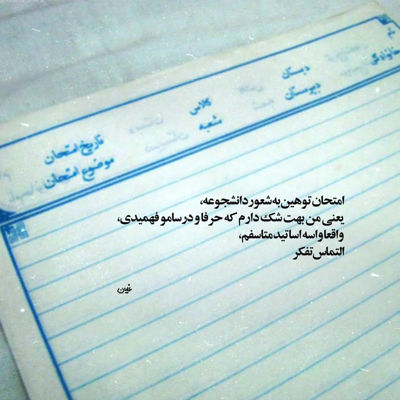 نام
خانوادگی
دبستان
دبیرستان
کلاس
شعبه
تاریخ امتحان
موضوع امتحان
امتحان توهین به شعور دانشجوعه،
یعنی من بهت شک دارم که حرفا و درسامو فهمیدی،
واقعا واسه اساتید متاسفم،
التماس تفکر